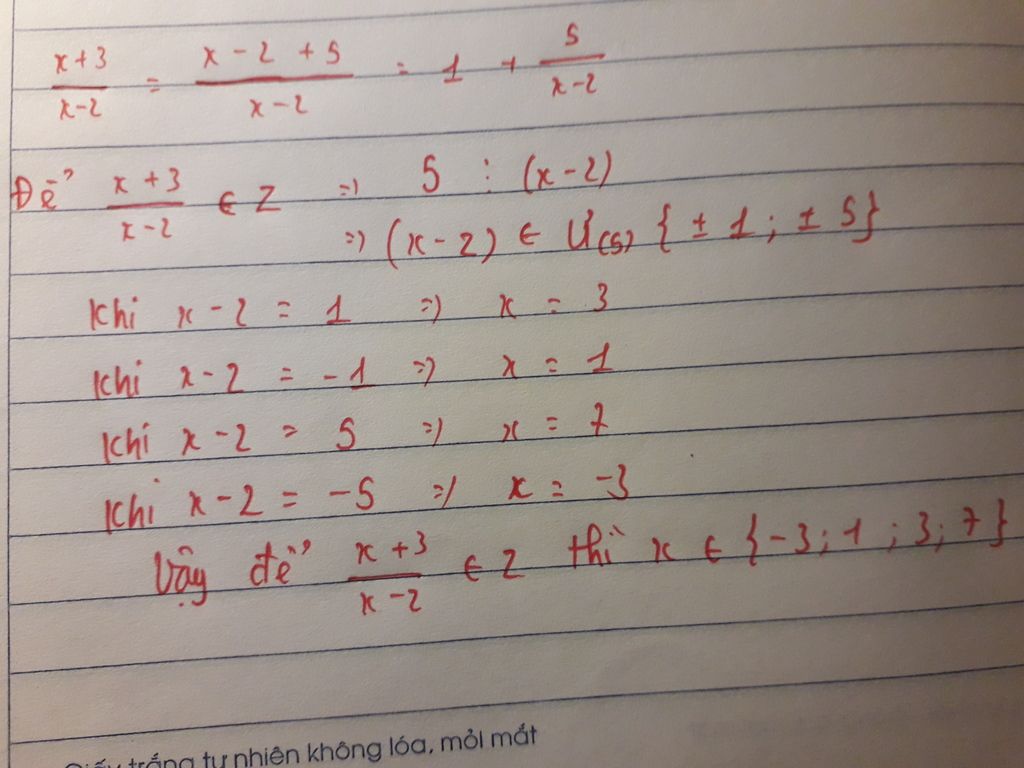 x+3/x-2 = x-2+5/x-2 = 1 + 5/x-2
Để x+3/x-2 ∈ Z => 5 ⋮ (x-2)
=> (x-2) ∈ Ư(5) {±1; ±5}
Khi x-2 = 1 => x = 3
Khi x-2 = -1 => x = 1
Khi x-2 = 5 => x = 7
Khi x-2 = -5 => x = -3
Vậy để x+3/x-2 ∈ Z thì x ∈ {-3; 1; 3; 7}
Giấy trắng tự nhiên không lóa, mỏi mắt